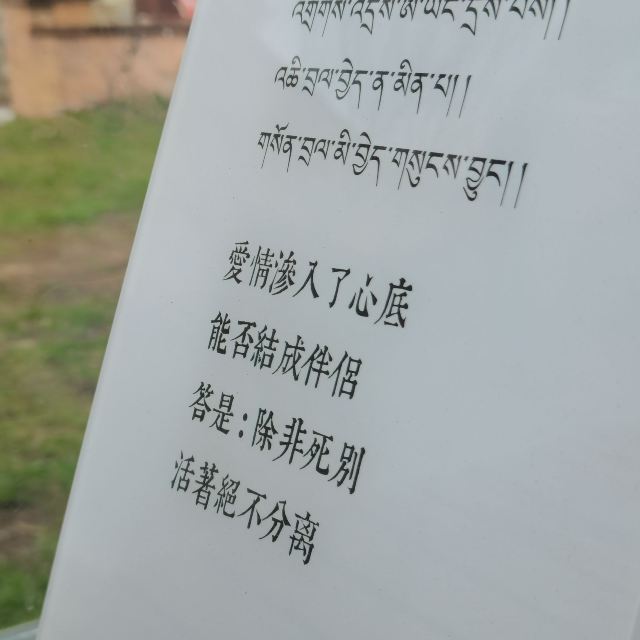 འགྲོགས་འདྲིས་ཨ་ཡང་དྲིས་པས།།
འཆི་བྲལ་བྱེད་ན་མིན་པ།།
གསོན་བྲལ་མི་བྱེད་གསུངས་བྱུང།།
愛情滲入了心底
能否結成伴侶
答是：除非死別
活著絕不分离